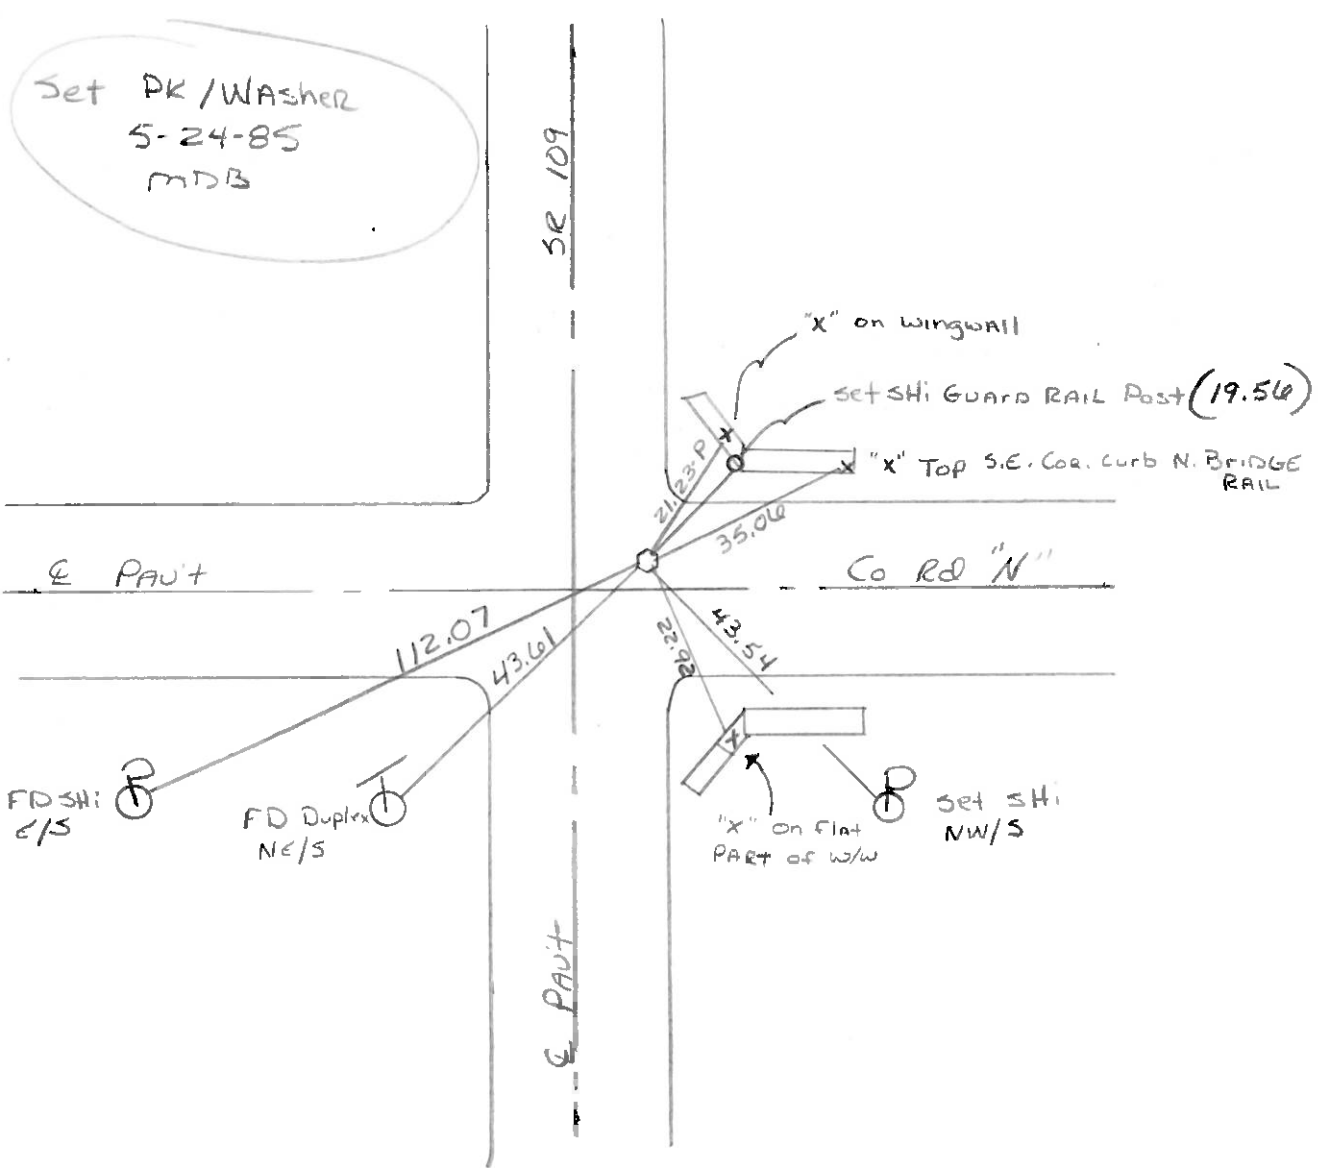 Set PK/WAsheR
5-24-85
MDB
SR 109
"X" on wingwAll
Set SHi GUArD RAIL Post (19.56)
"X" Top S.E. Cor. Curb N. BriDGE
RAIL
21.23-P
35.06
℄ PAV't
Co Rd "N"
112.07
43.61
22.92
43.54
FD SHi
E/S
FD Duplex
NE/S
"X" on FlAt
PArt of W/W
Set SHi
NW/S
℄ PAV't